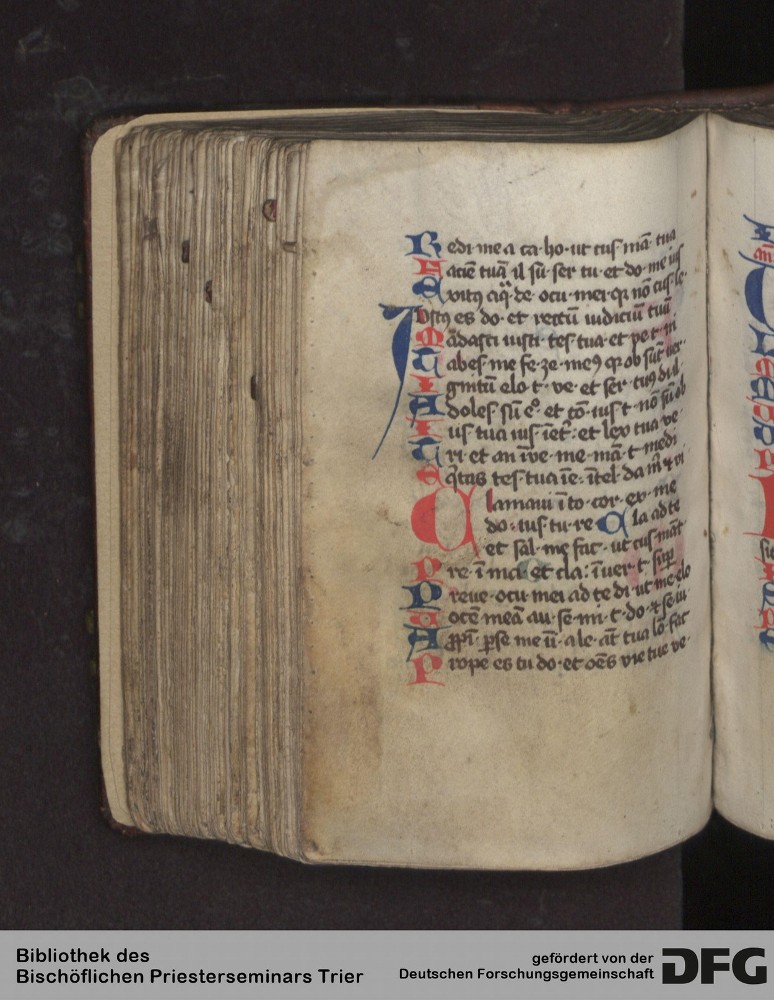 Redi·me a ca·ho·ut cus·mā·tua
Facie tuā il sū·ser tu·et do·me ius
Exitꝯ aq̄·de·ocu·mei·qr nō cus·le·
Iustꝯ es do·et rectū iudiciū tuū
Mādasti iusti·tes tua·et
Tabes·me fe·ze·meꝯ qr ob sūt ver·
Ignitū elo·t·ve·et ser·tuꝯ dil·
Adoles·sū e°·et cō·ius·t·nō sū ob
Ius tua ius·iet̄·et lex tua ve
Tri·et an īve·me·mā·t medi
Eq̄tas tes·tua īe·ītel·da m̄ & vi
Clamaui ī to·cor·ex·me
do·ius·tu·re Cla ad te
et sal·me fac·ut cus·māt
Pre·ī ma·et cla·ī ver·t·
Preue·ocu·mei ad te di·ut me·elo
Uocē meā au·se·mi·t·do·&
Apr̄i·pse·me ū·a le·at̄ tua lō·fac
Prope es tu do·et oēs vie tue ve·
Bibliothek des
Bischöflichen Priesterseminars Trier
gefördert von der
Deutschen Forschungsgemeinschaft
DFG